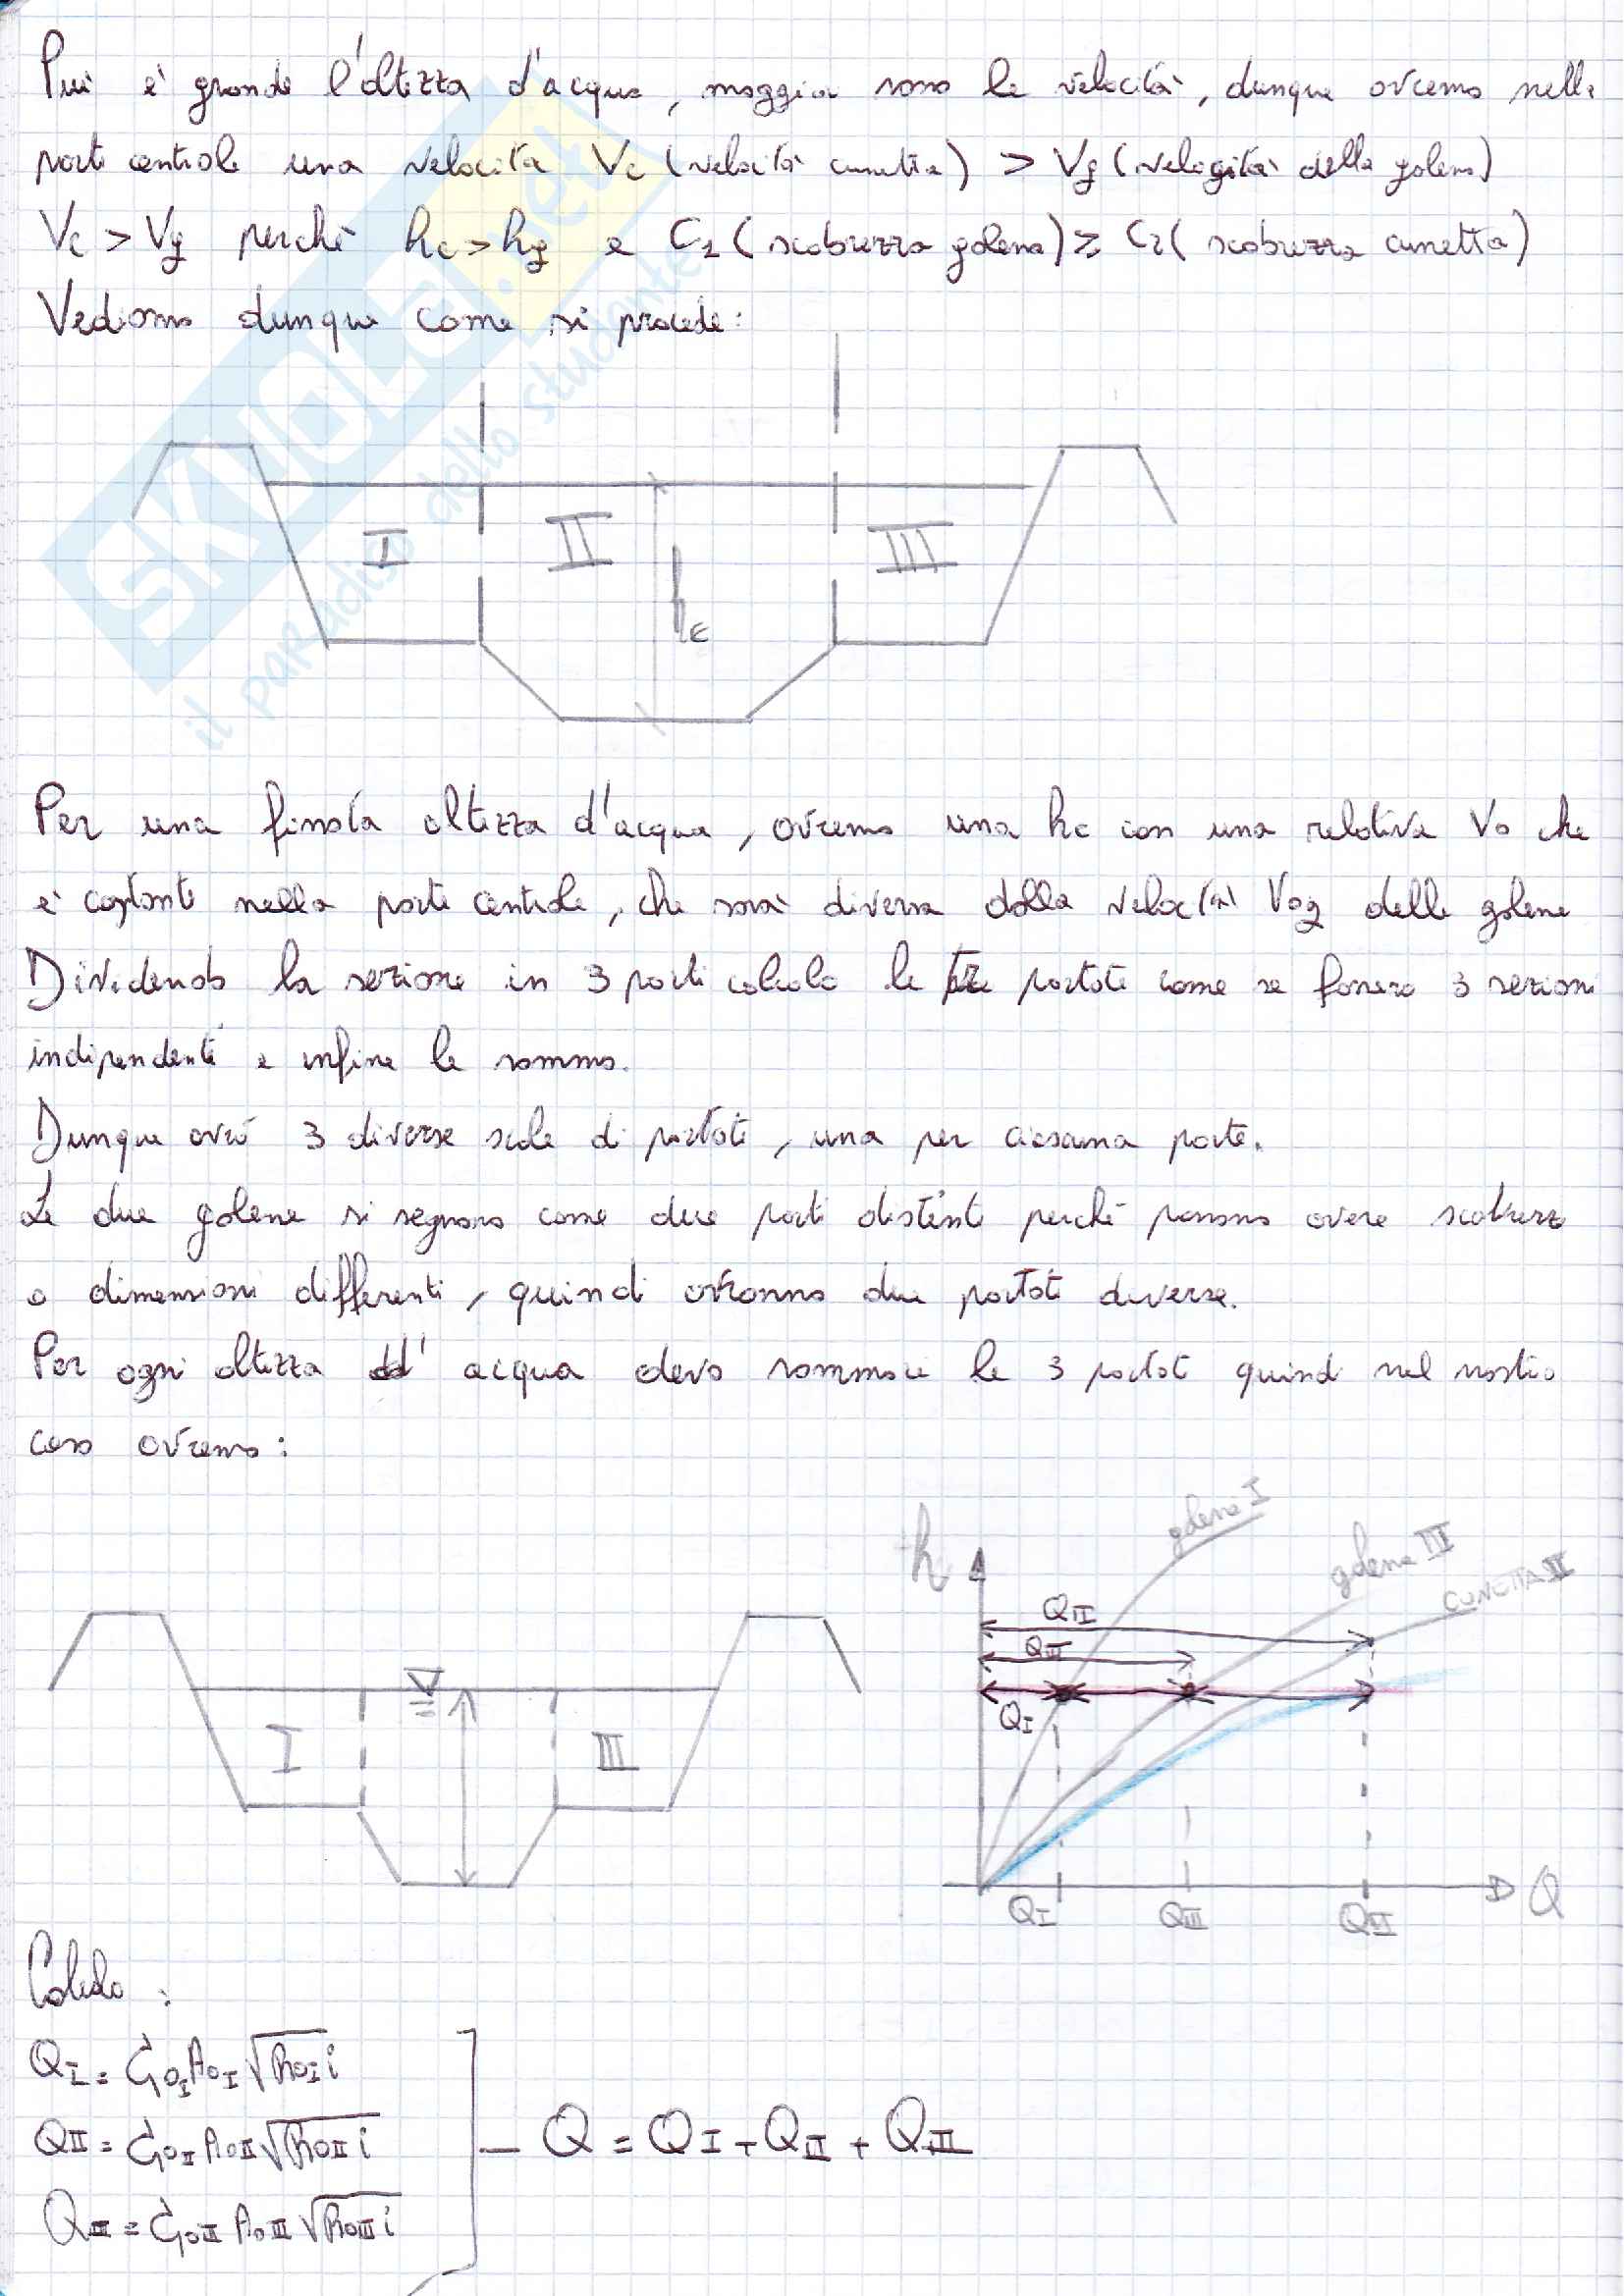 Più è grande l'altezza d'acqua, maggiori sono le velocità, dunque avremo nella
parte centrale una velocità Vc (velocità cunetta) > Vg (velocità della golena)
Vc > Vg perché hc > hg e C1 (scabrezza golena) ≥ C2 (scabrezza cunetta)
Vediamo dunque come si procede:
I II III
hc
Per una fissata altezza d'acqua, avremo una hc con una relativa Vo che
è costante nella parte centrale, che sarà diversa dalla velocità Vog delle golene
Dividendo la sezione in 3 parti calcolo le tre portate come se fossero 3 sezioni
indipendenti e infine le sommo.
Dunque avrò 3 diverse scale di portate, una per ciascuna parte.
Le due golene si segnano come due parti distinte perché possono avere scabrezz
o dimensioni differenti, quindi avranno due portate diverse.
Per ogni altezza d'acqua devo sommare le 3 portate quindi nel nostro
caso avremo:
golena I
h
golena III
CUNETTA II
QII
QIII
QI
I III
QI QIII QII Q
Calcolo:
QI = C0I A0I √R0I i
QII = C0II A0II √R0II i
Q = QI + QII + QIII
QIII = C0III A0III √R0III i
SKUOLA.net
il paradiso dello studente